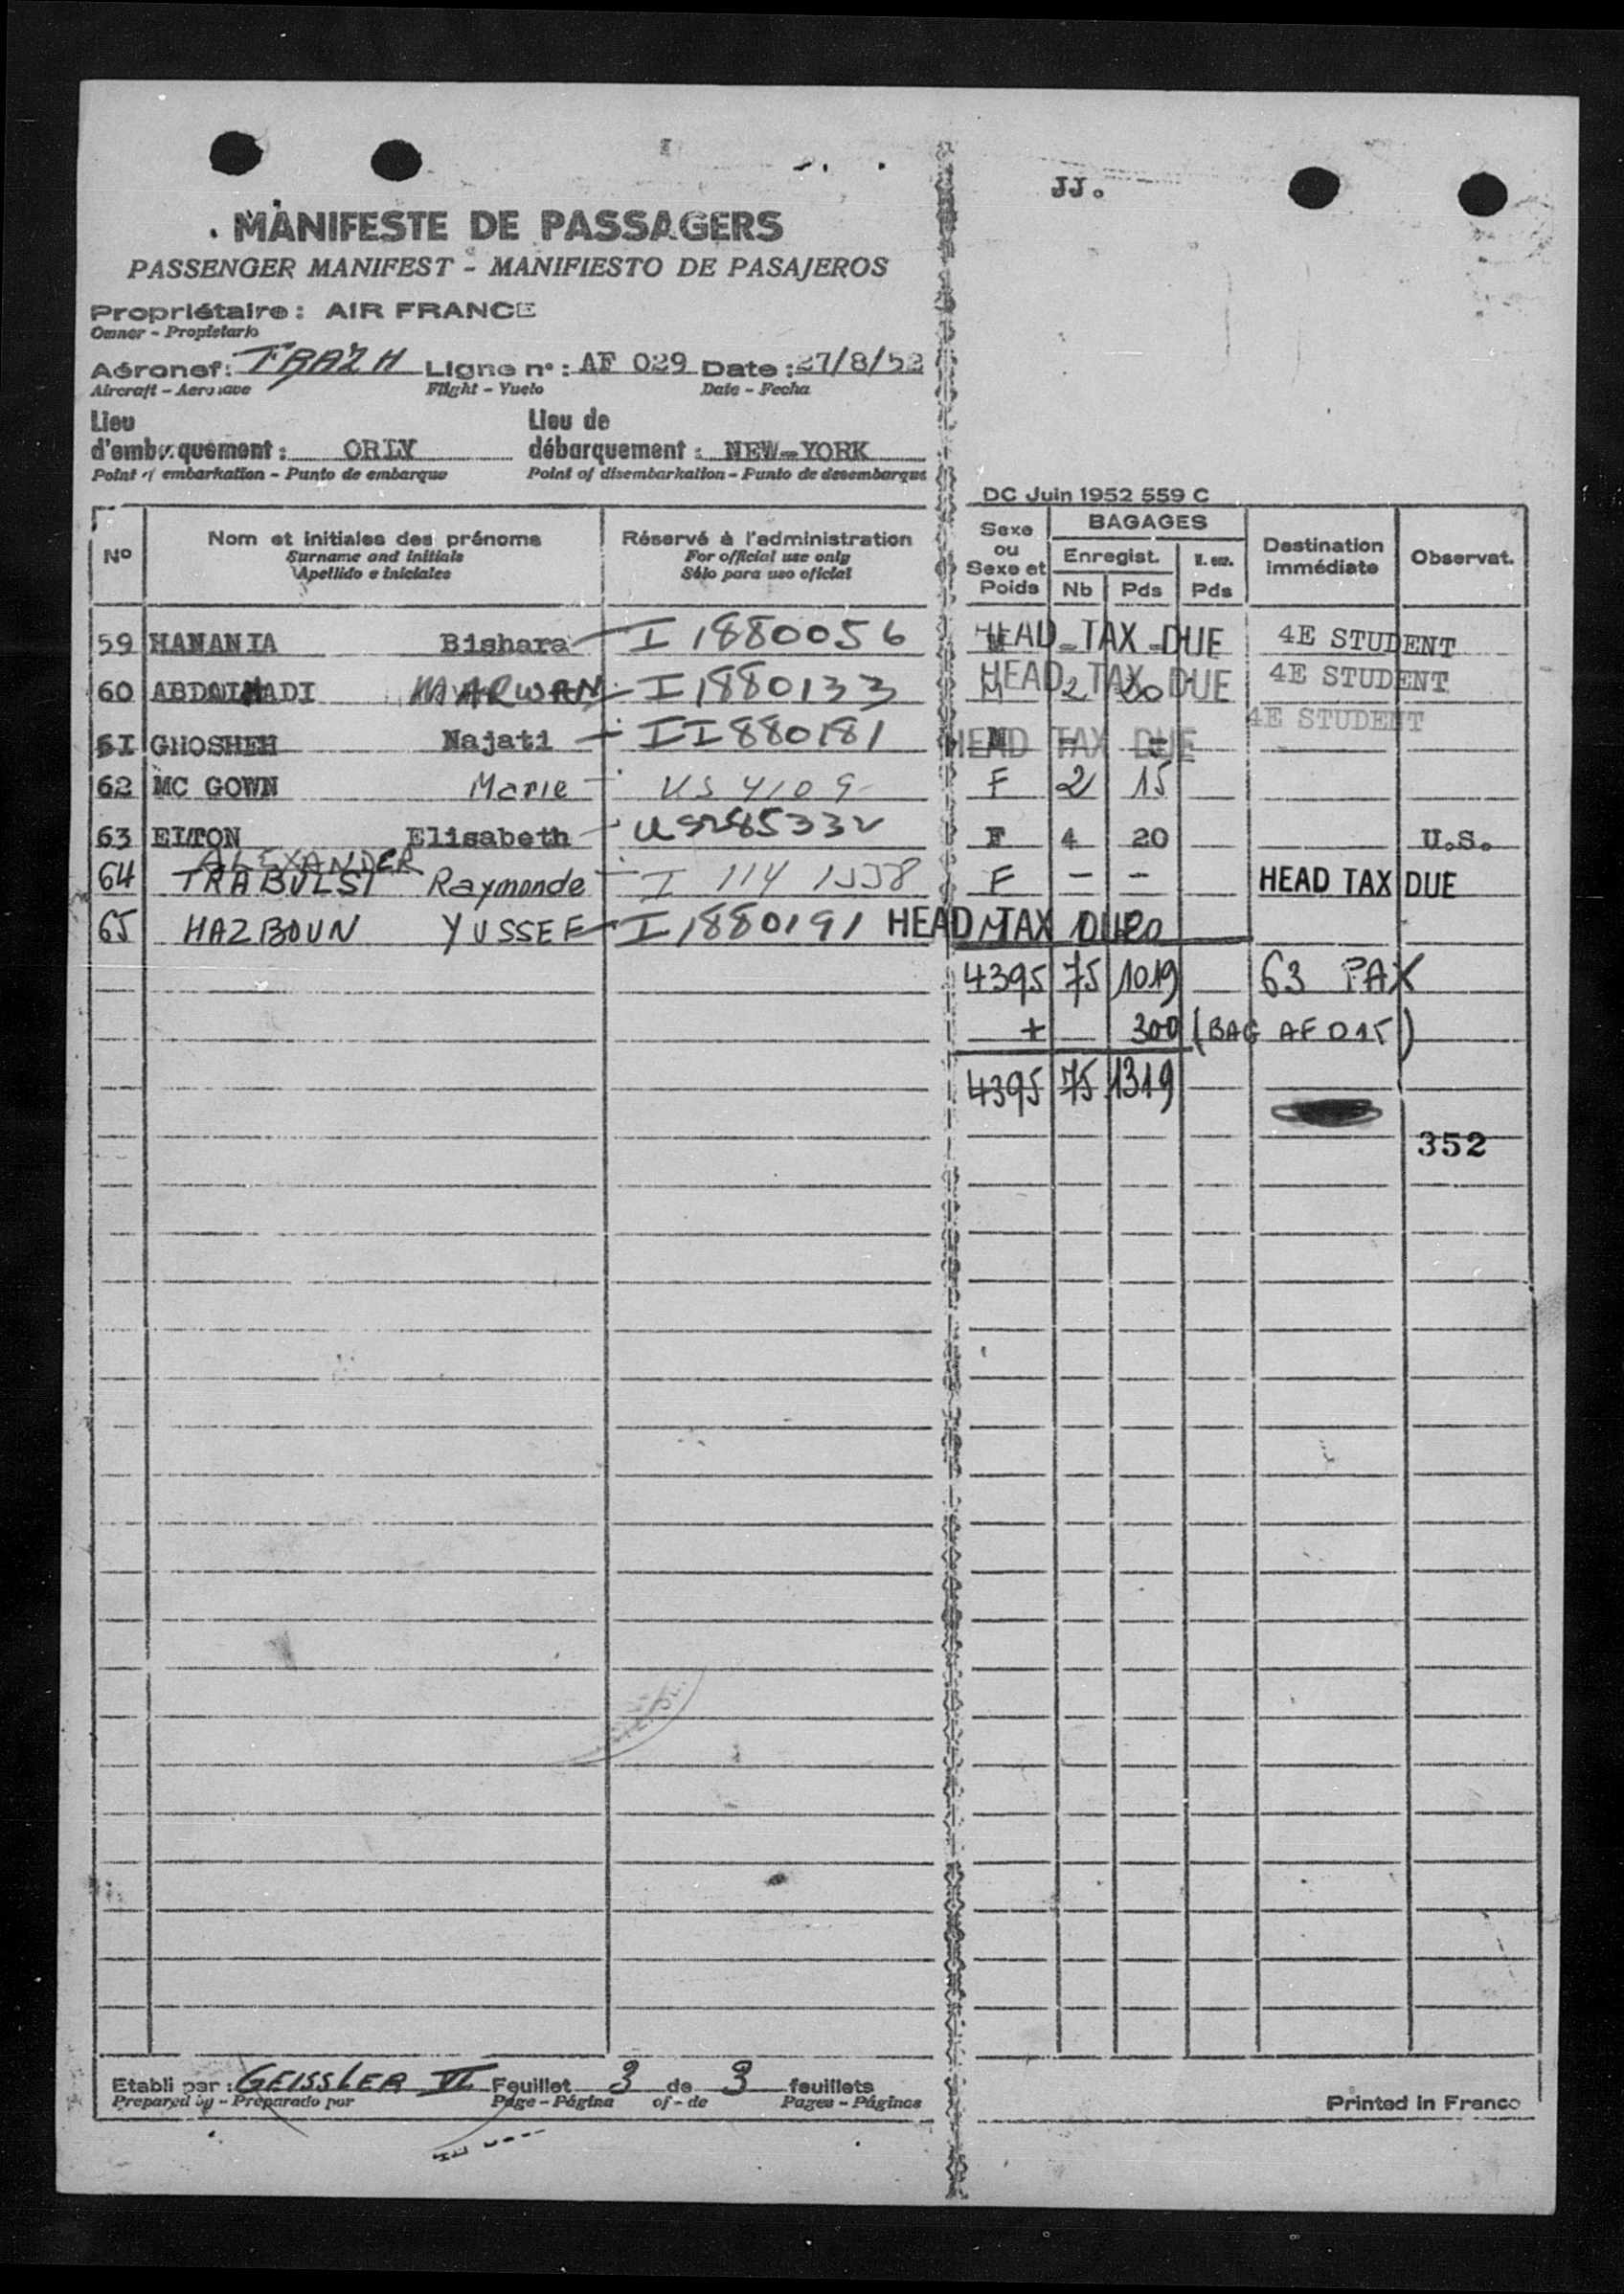 JJ.
MANIFESTE DE PASSAGERS
PASSENGER MANIFEST - MANIFIESTO DE PASAJEROS
Propriétaire : AIR FRANCE
Owner - Propietario
Aéronef: Ligne n° : AF 029 Date : 27/8/52
Aircraft - Aeronave Flight - Vuelo Date - Fecha
Lieu d'embarquement : ORLY Lieu de débarquement : NEW-YORK
Point of embarkation - Punto de embarque Point of disembarkation - Punto de desembarque
DC Juin 1952 559 C
N° Nom et initiales des prénoms Réservé à l'administration Sexe ou Sexe et Poids BAGAGES Destination immédiate Observat.
Surname and initials For official use only Enregist. Pds
Apellido e iniciales Sólo para uso oficial Nb Pds
59 HANANIA Bishara I 1880056 HEAD TAX DUE 4E STUDENT
60 MARWAN I 1880133 M 2 20 HEAD TAX DUE 4E STUDENT
61 GHOSHEH Najati I I880181 HEAD TAX DUE 4E STUDENT
62 MC GOWN Marie US 4109 F 2 15
63 ELTON Elisabeth F 4 20 U.S.
ALEXANDER
64 TRABULSI Raymonde I 114 F - - HEAD TAX DUE
65 HAZBOUN YUSSEF I 1880191 HEAD TAX DUE M 20
4395 75 1019 63 PAX
+ 300 (BAG AF 015)
4395 75 1319
352
Etabli par : GEISSLER VI Feuillet 3 de 3 feuillets
Prepared by - Preparado por Page - Página of - de Pages - Páginas
Printed in France